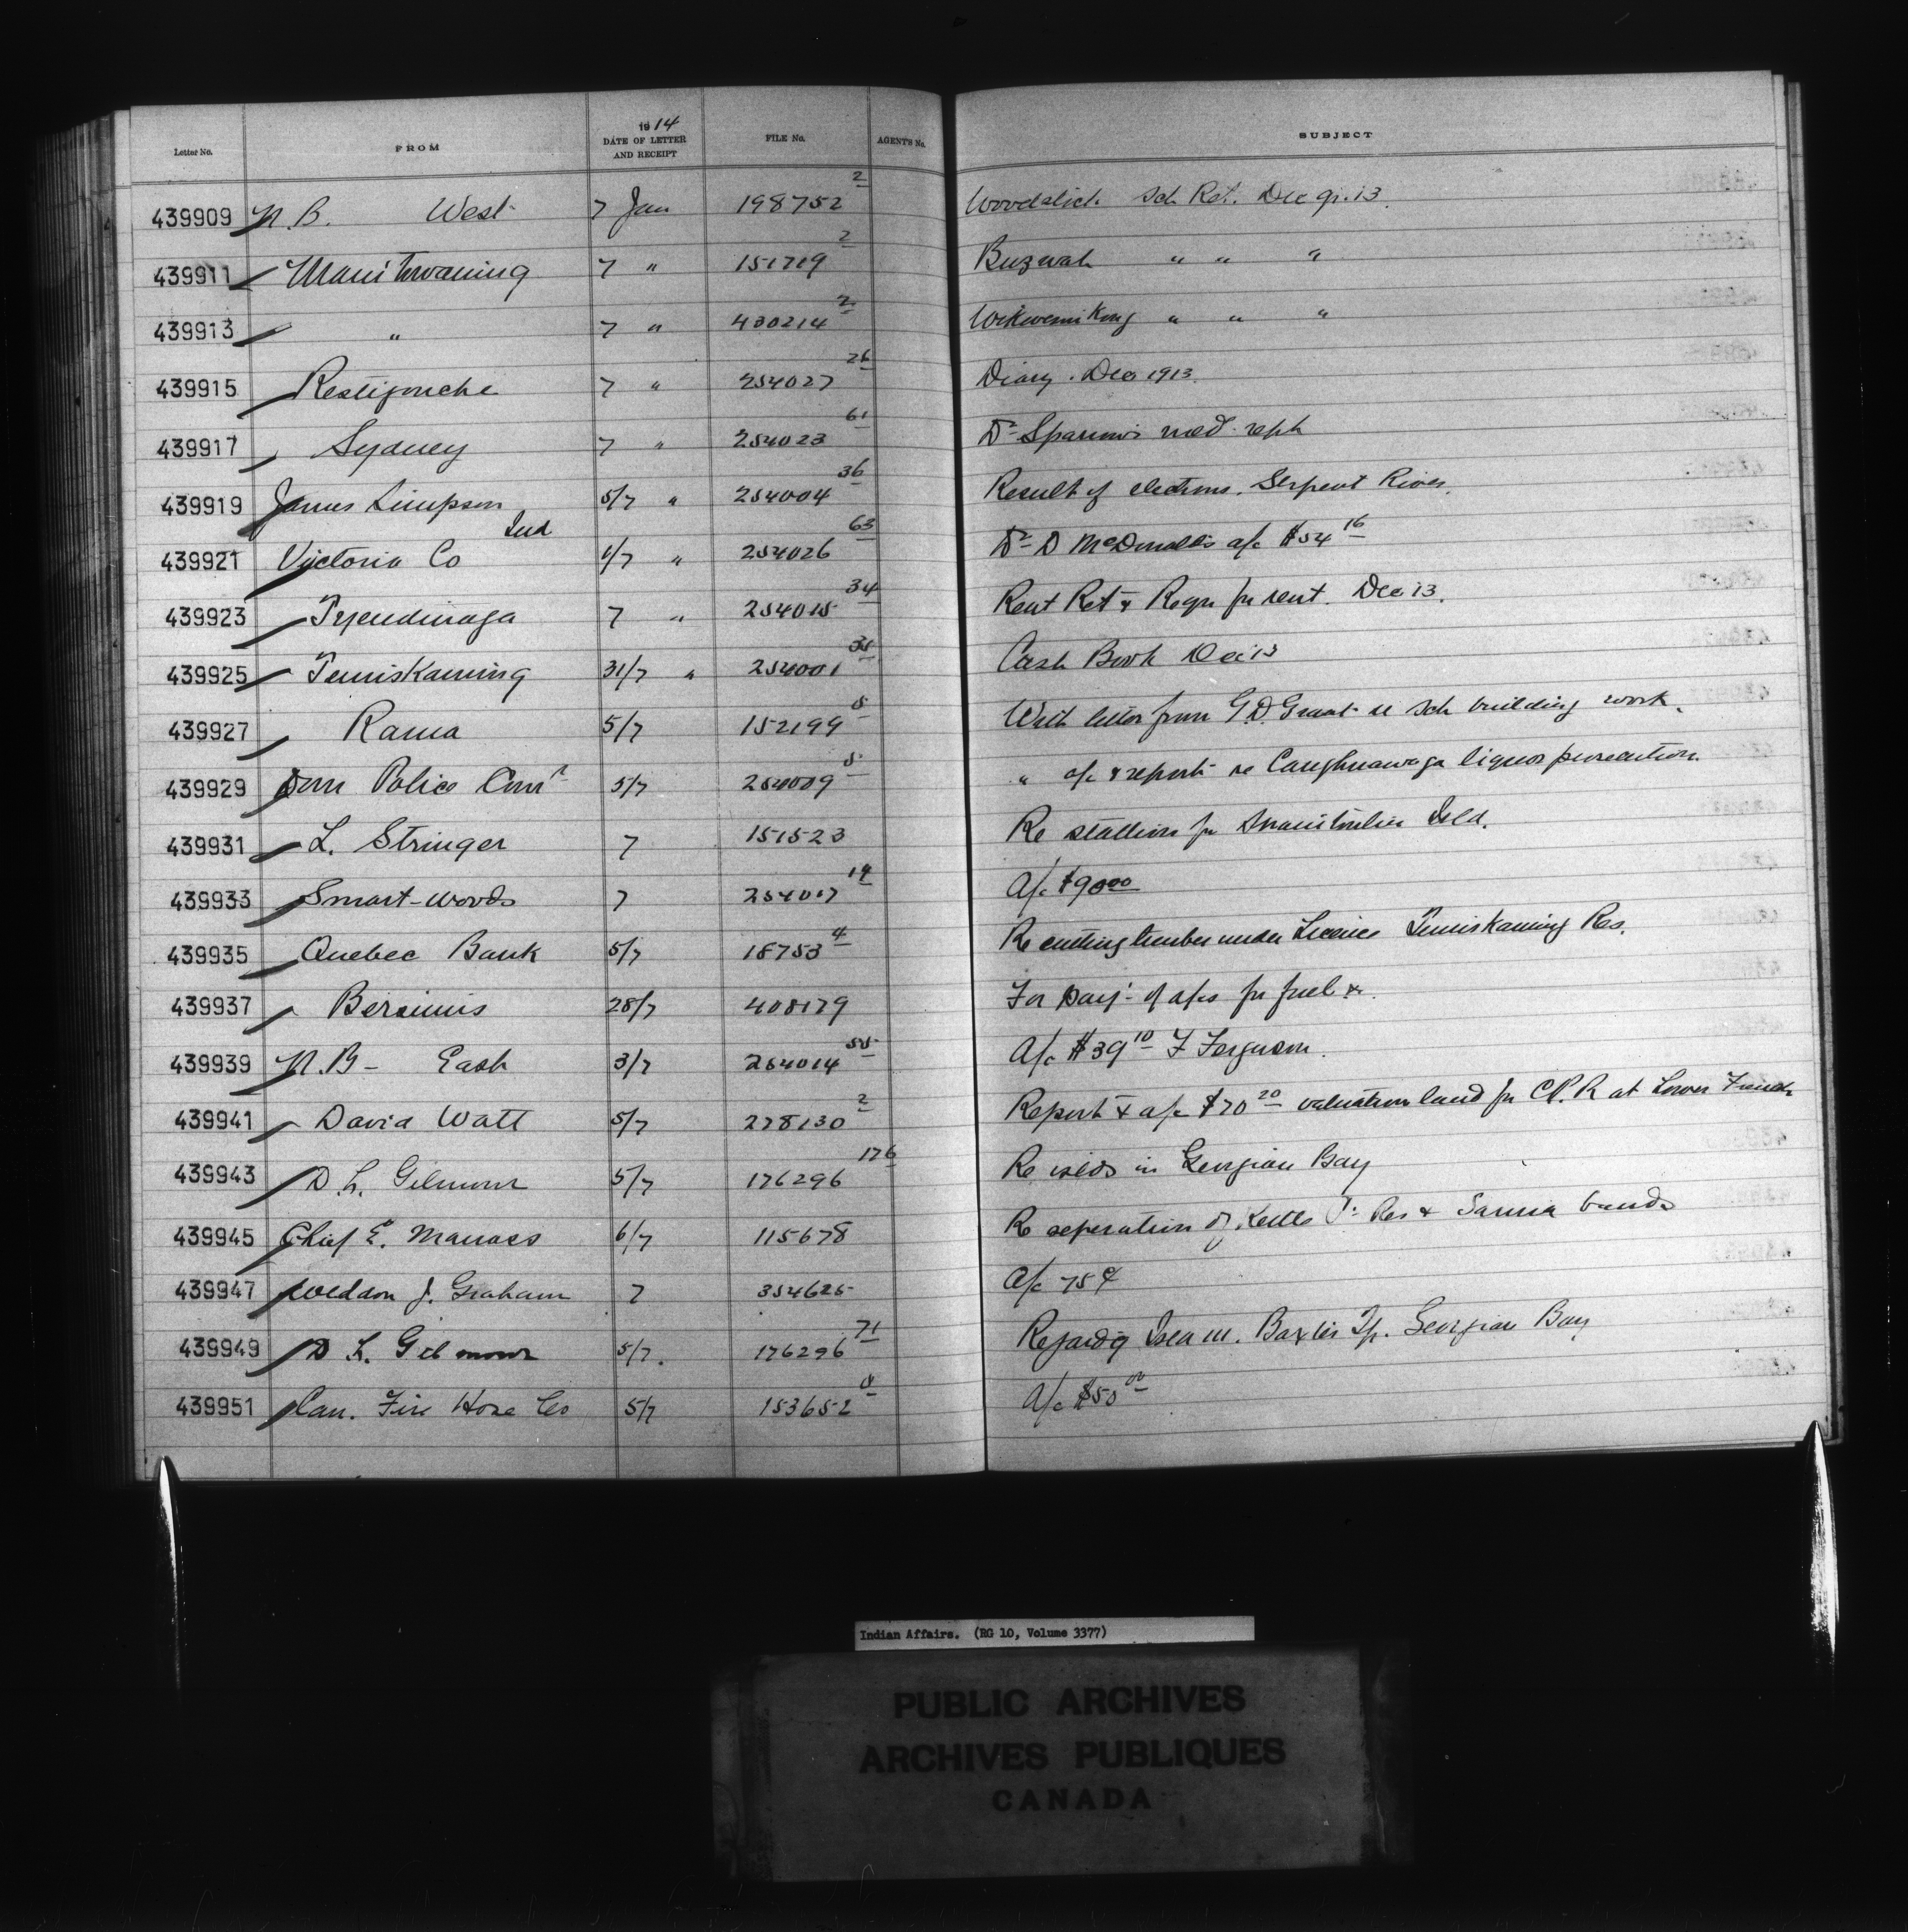 1914
Letter No. FROM DATE OF LETTER AND RECEIPT FILE No. AGENT'S No. SUBJECT
439909 N.B. West 7 Jan 198752 2 Woodstock Sch. Ret. Dec qr. 13.
439911 Manitowaning 7 " 151719 2 Buzwah " " "
439913 " 7 " 430214 2 Wikwemikong " " "
439915 Restigouche 7 " 254027 26 Diary. Dec 1913.
439917 Sydney 7 " 254023 61 Dr med. rept
439919 James Simpson 5/7 " 254004 36 Result of elections. Serpent River.
439921 Victoria Co Ind 1/7 " 254026 63 Dr D McDonald's a/c $54 16
439923 Tyendinaga 7 " 254015 34 Rent Ret & Reqn for rent. Dec 13.
439925 Temiskaming 31/7 " 254001 35 Cash Book Dec 13
439927 Rama 5/7 152199 5 With letter from G.D. Grant re Sch building work.
439929 Dom Police Comr 5/7 254009 5 " a/c & report re Caughnawaga liquor prosecution.
439931 L. Stringer 7 151523 Re stallion for Manitoulin Isld.
439933 Smart-Woods 7 254017 19 A/c $90 00
439935 Quebec Bank 5/7 18753 4 Re cutting timber under Licence Temiskaming Res.
439937 Bersimis 28/7 408179 For Payt of a/cs for fuel &c.
439939 N.B - East 3/7 254014 55 A/c $39 10 F Ferguson.
439941 David Watt 5/7 278130 2 Report & a/c $70 20 valuation land for C.P.R at Lower French
439943 D. L. Gilmour 5/7 176296 176 Re islds in Georgian Bay
439945 Chief E. Manass 6/7 115678 Re seperation of Kettle Pt Res & Sarnia bands
439947 Weldon J. Graham 7 354625 A/c 75¢
439949 D L. Gilmour 5/7. 176296 71 Regardg Isld 111. Baxter Tp. Georgian Bay
439951 Can. Fire Hose Co 5/7 153652 8 A/c $50 00
Indian Affairs. (RG 10, Volume 3377)
PUBLIC ARCHIVES
ARCHIVES PUBLIQUES
CANADA